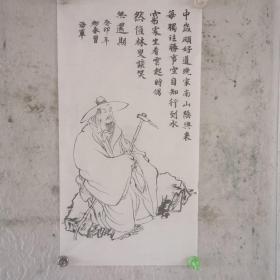 中歲頗好道晚家南山陲興來
每獨往勝事空自知行到水
窮處坐看雲起時偶
然值林叟談笑
無還期
癸卯年
春
海軍